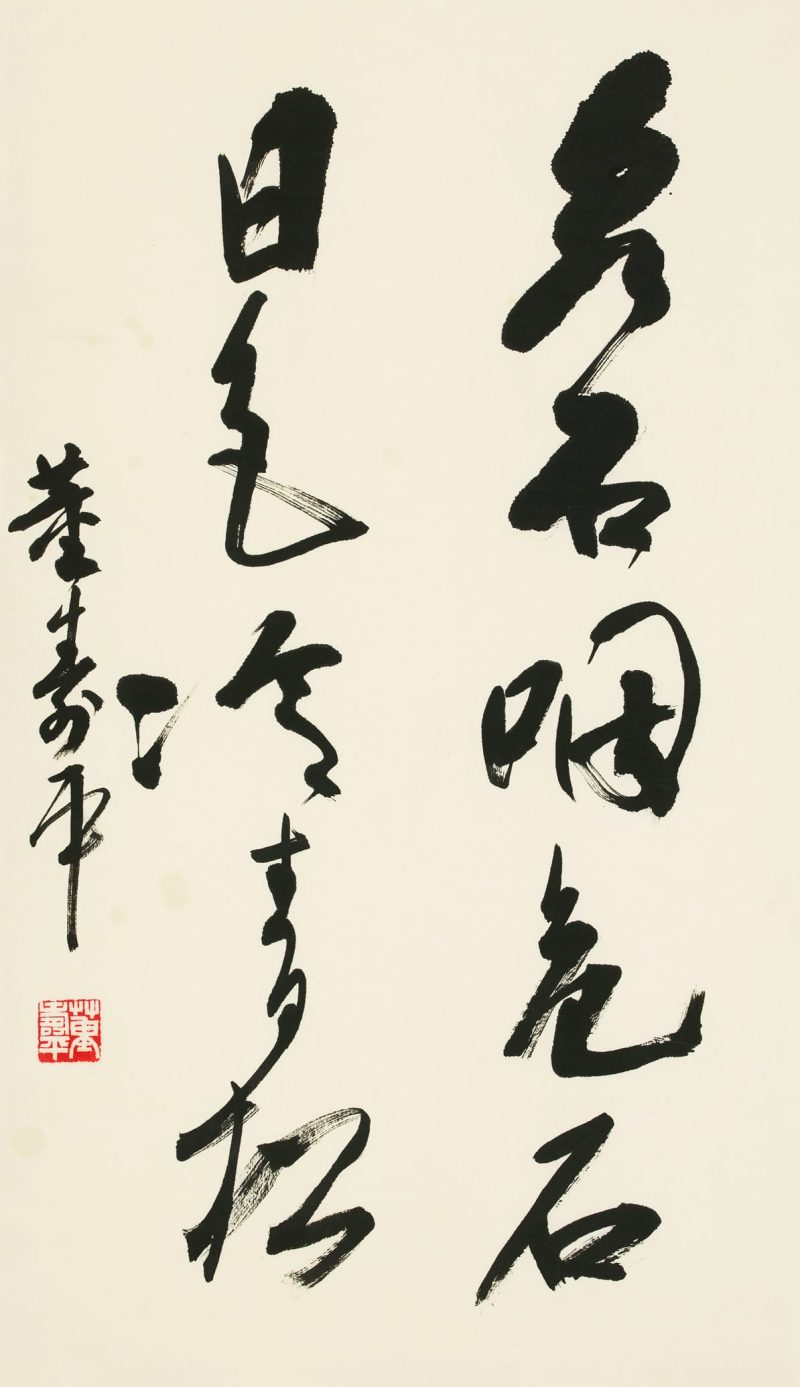 泉声咽危石
日色冷青松
董寿平
董壽平